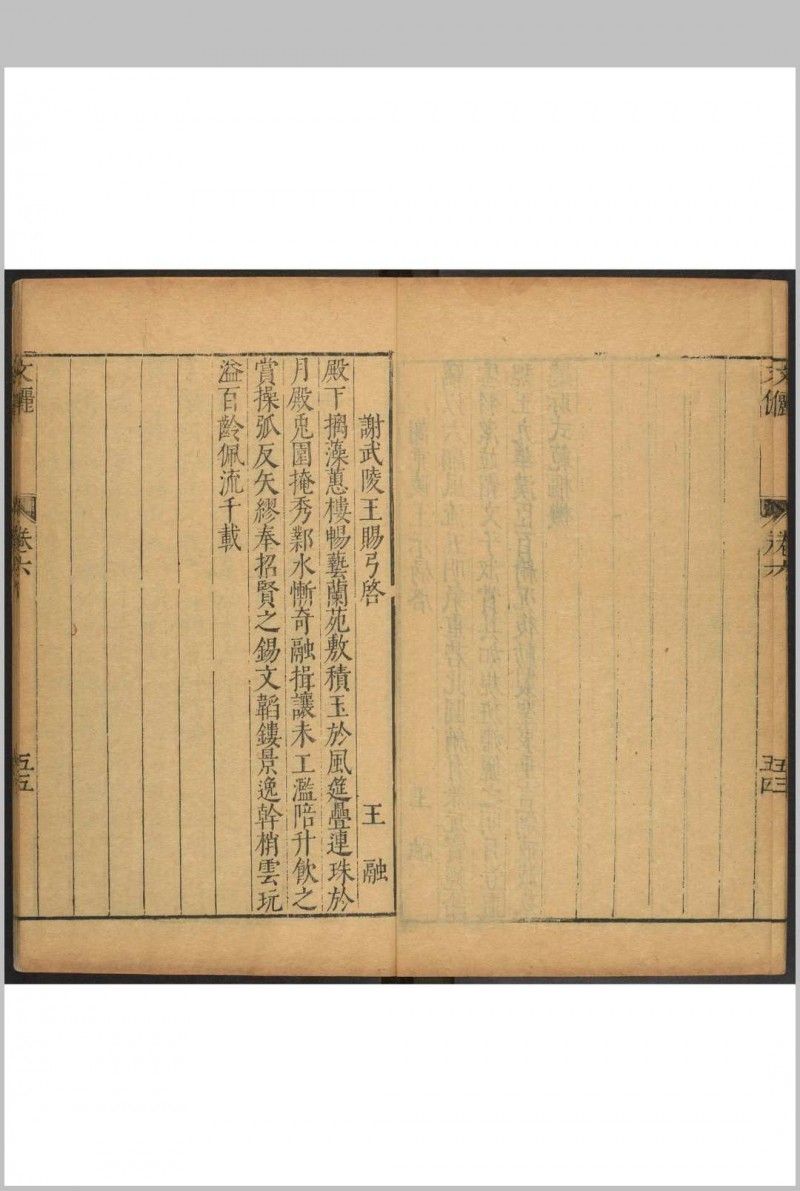 謝武陵王賜弓啓　王融
殿下摛藻蕙樓暢藝蘭苑敷積玉於風筵疊連珠於
月殿兎園掩秀鄴水慚奇融揖讓未工濫陪升飲之
賞操弧反矢繆奉招賢之錫文韜鏤景逸幹梢雲玩
溢百齡佩流千載
卷六
五五
卷六